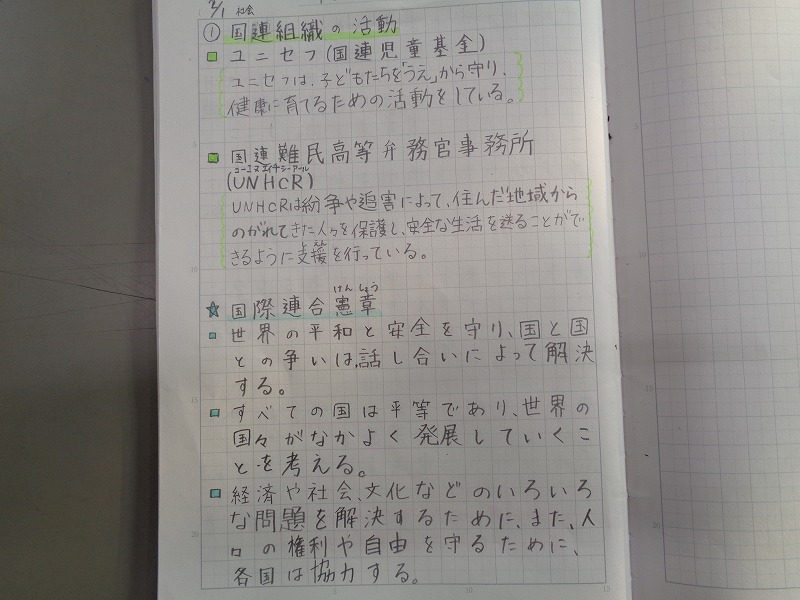 2/1 社会
① 国連組織の活動
ユニセフ(国連児童基金)
ユニセフは、子どもたちを「うえ」から守り、
健康に育てるための活動をしている。
国連難民高等弁務官事務所
ユーエヌエイチシーアール
(UNHCR)
UNHCRは紛争や迫害によって、住んだ地域から
のがれてきた人々を保護し、安全な生活を送ることがで
きるように支援を行っている。
けんしょう
☆ 国際連合憲章
世界の平和と安全を守り、国と国
との争いは、話し合いによって解決
する。
すべての国は平等であり、世界の
国々がなかよく発展していくこ
とを考える。
経済や社会、文化などのいろいろ
な問題を解決するために、また、人
口の権利や自由を守るために、
各国は協力する。